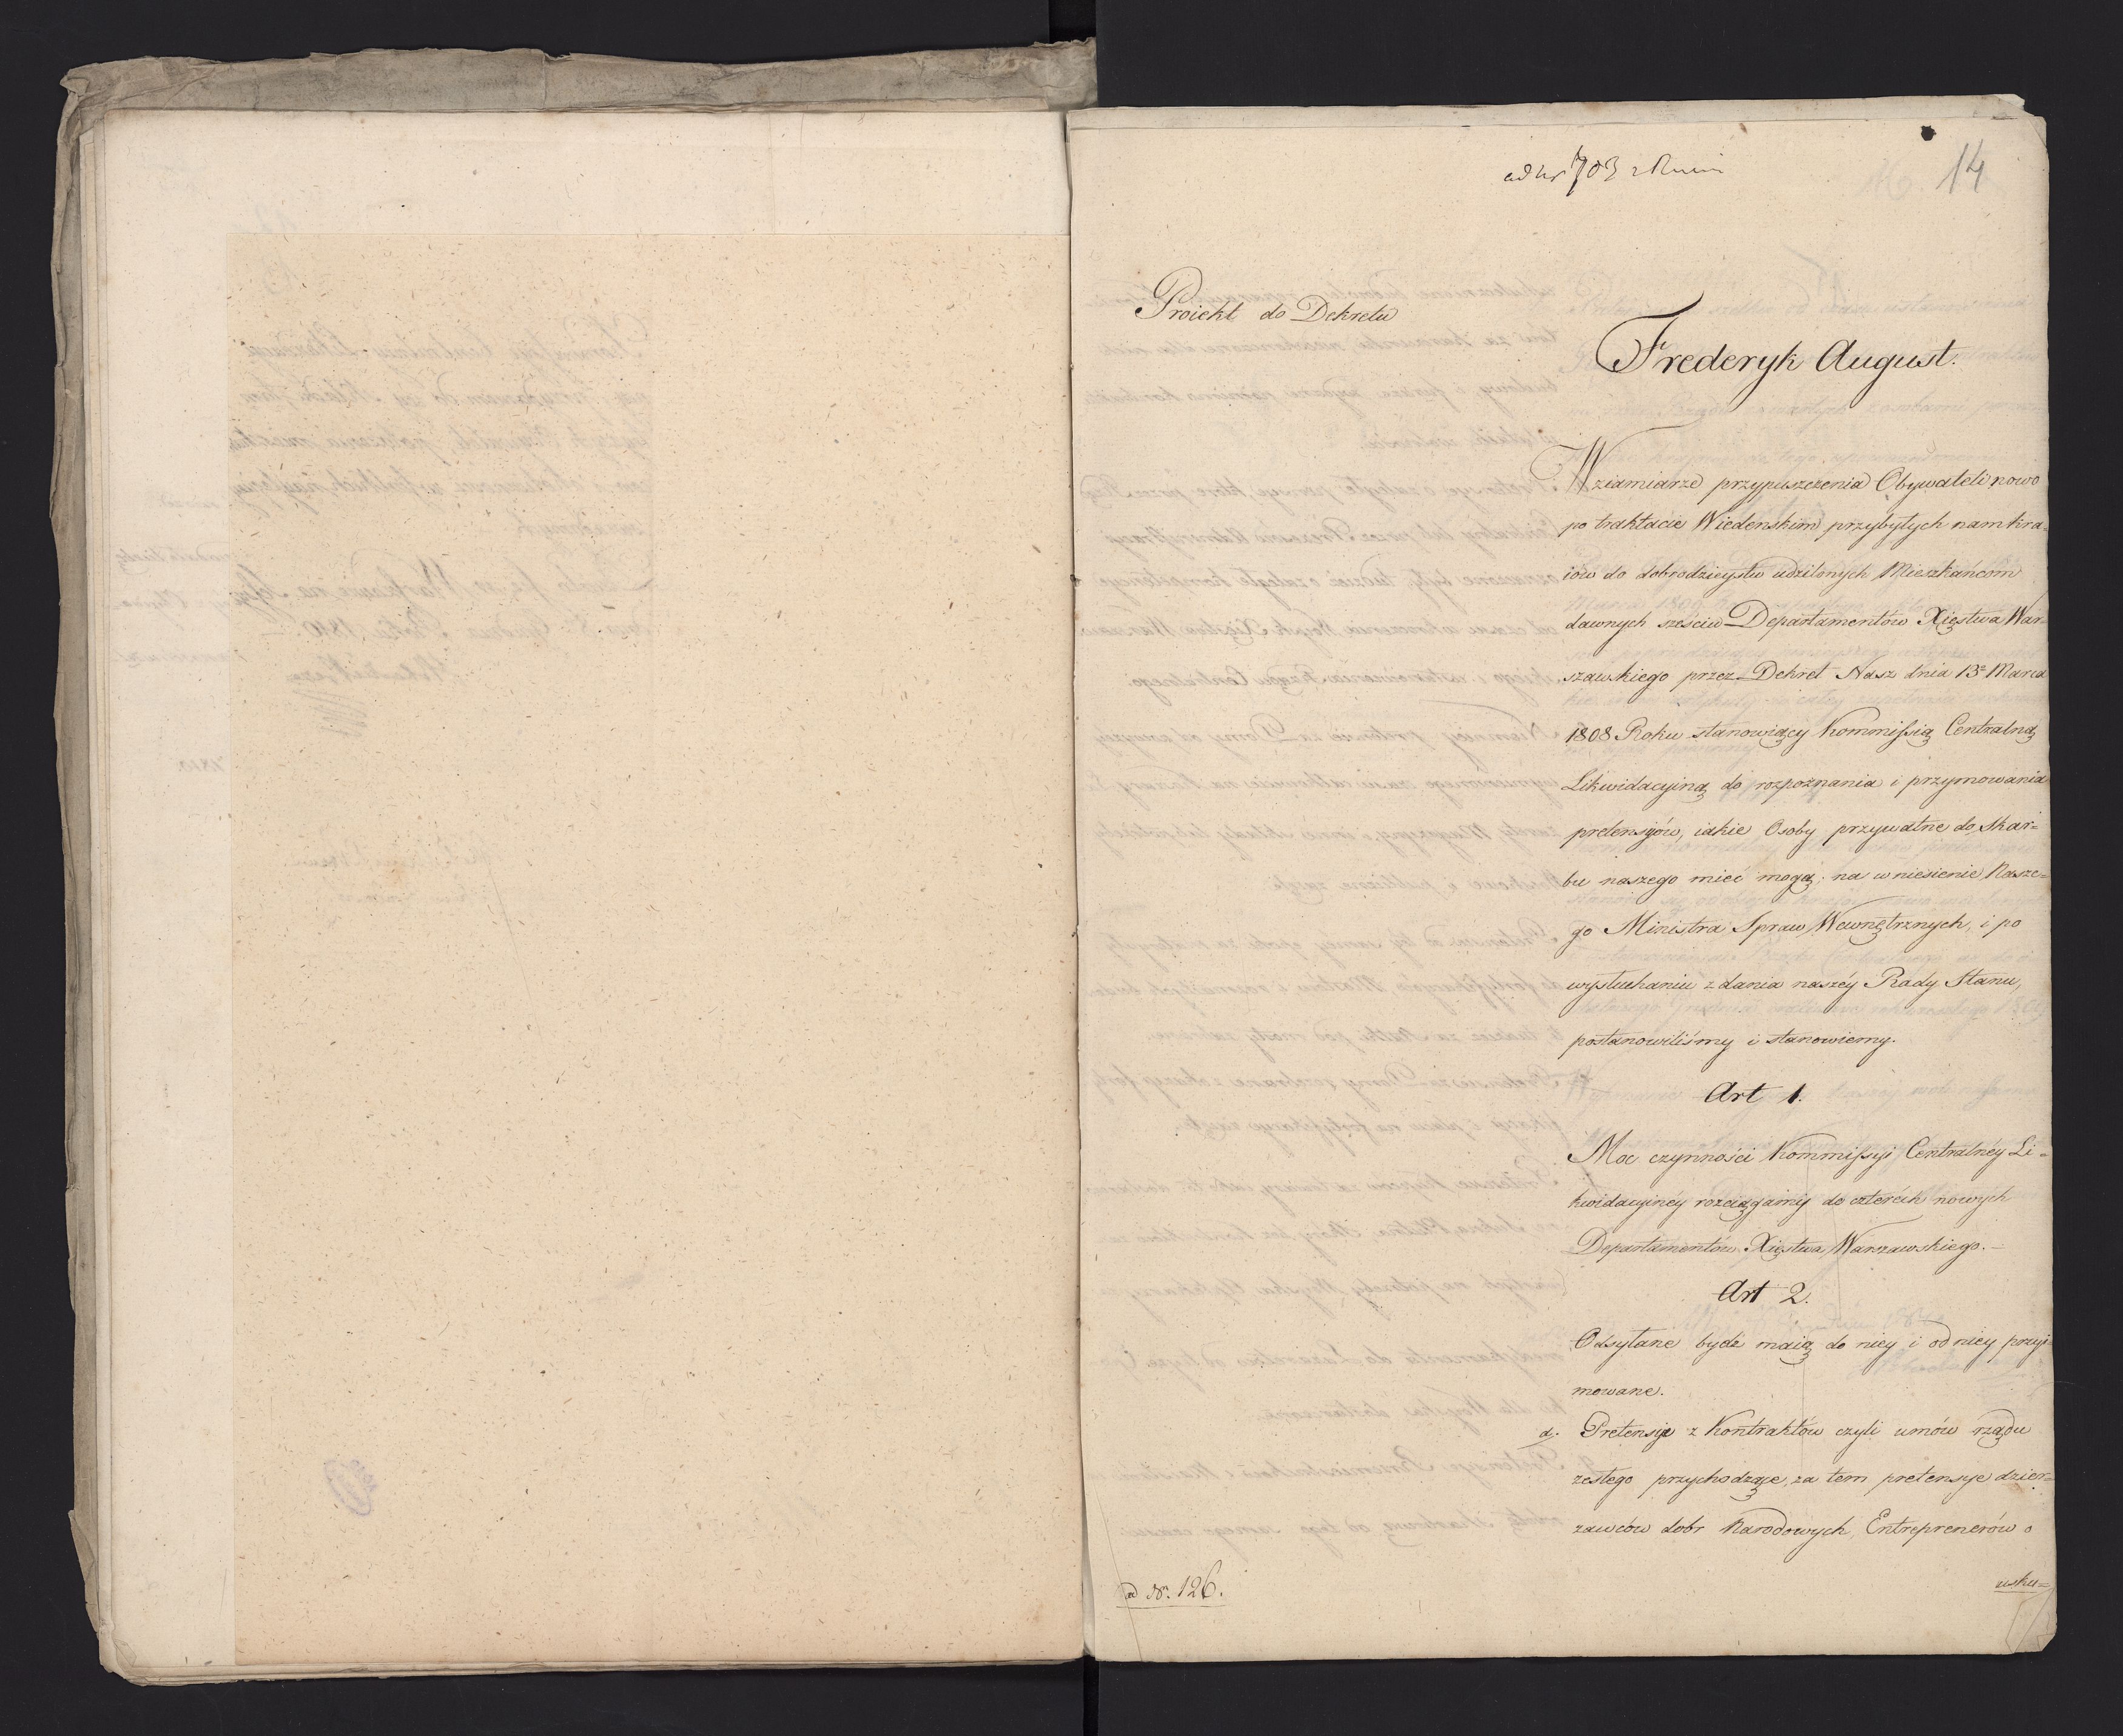 ad Nr 703
14
Proiekt do Dekretu
Frederyk August.
W zamiarze przypuszczenia Obywateli nowo
po traktacie Wiedenskim przybyłych nam kra-
iów do dobrodzieystw udzilonych Mieszkańcom
dawnych sześciu Departamentów Xięstwa War-
szawskiego przez Dekret Nasz dnia 13º Marca
1808 Roku stanowiący Kommissią Centralną
Likwidacyiną do rozpoznania i przymowania
pretensyów, iakie Osoby prywatne do Skar=
bu naszego mieć mogą; na wniesienie Nasze=
go Ministra Spraw Wewnętrznych, i po
wysłuchaniu zdania naszéy Rady Stanu,
postanowiliśmy i stanowiemy.
Art 1.
Moc czynności Kommissyi Centralnéy Li=
kwidacyinéy rozciągamy do czterech nowych
Departamentów Xięstwa Warszawskiego.—
Art 2.
Odsyłane bydź maią do niey i od niey przyi=
mowane.
a. Pretensye z Kontraktów czyli umów rządu
zeszłego przychodzące, za tem pretensye dzier=
zawców dobr Narodowych, Entreprenerów o
ad Nr. 126.
usku=